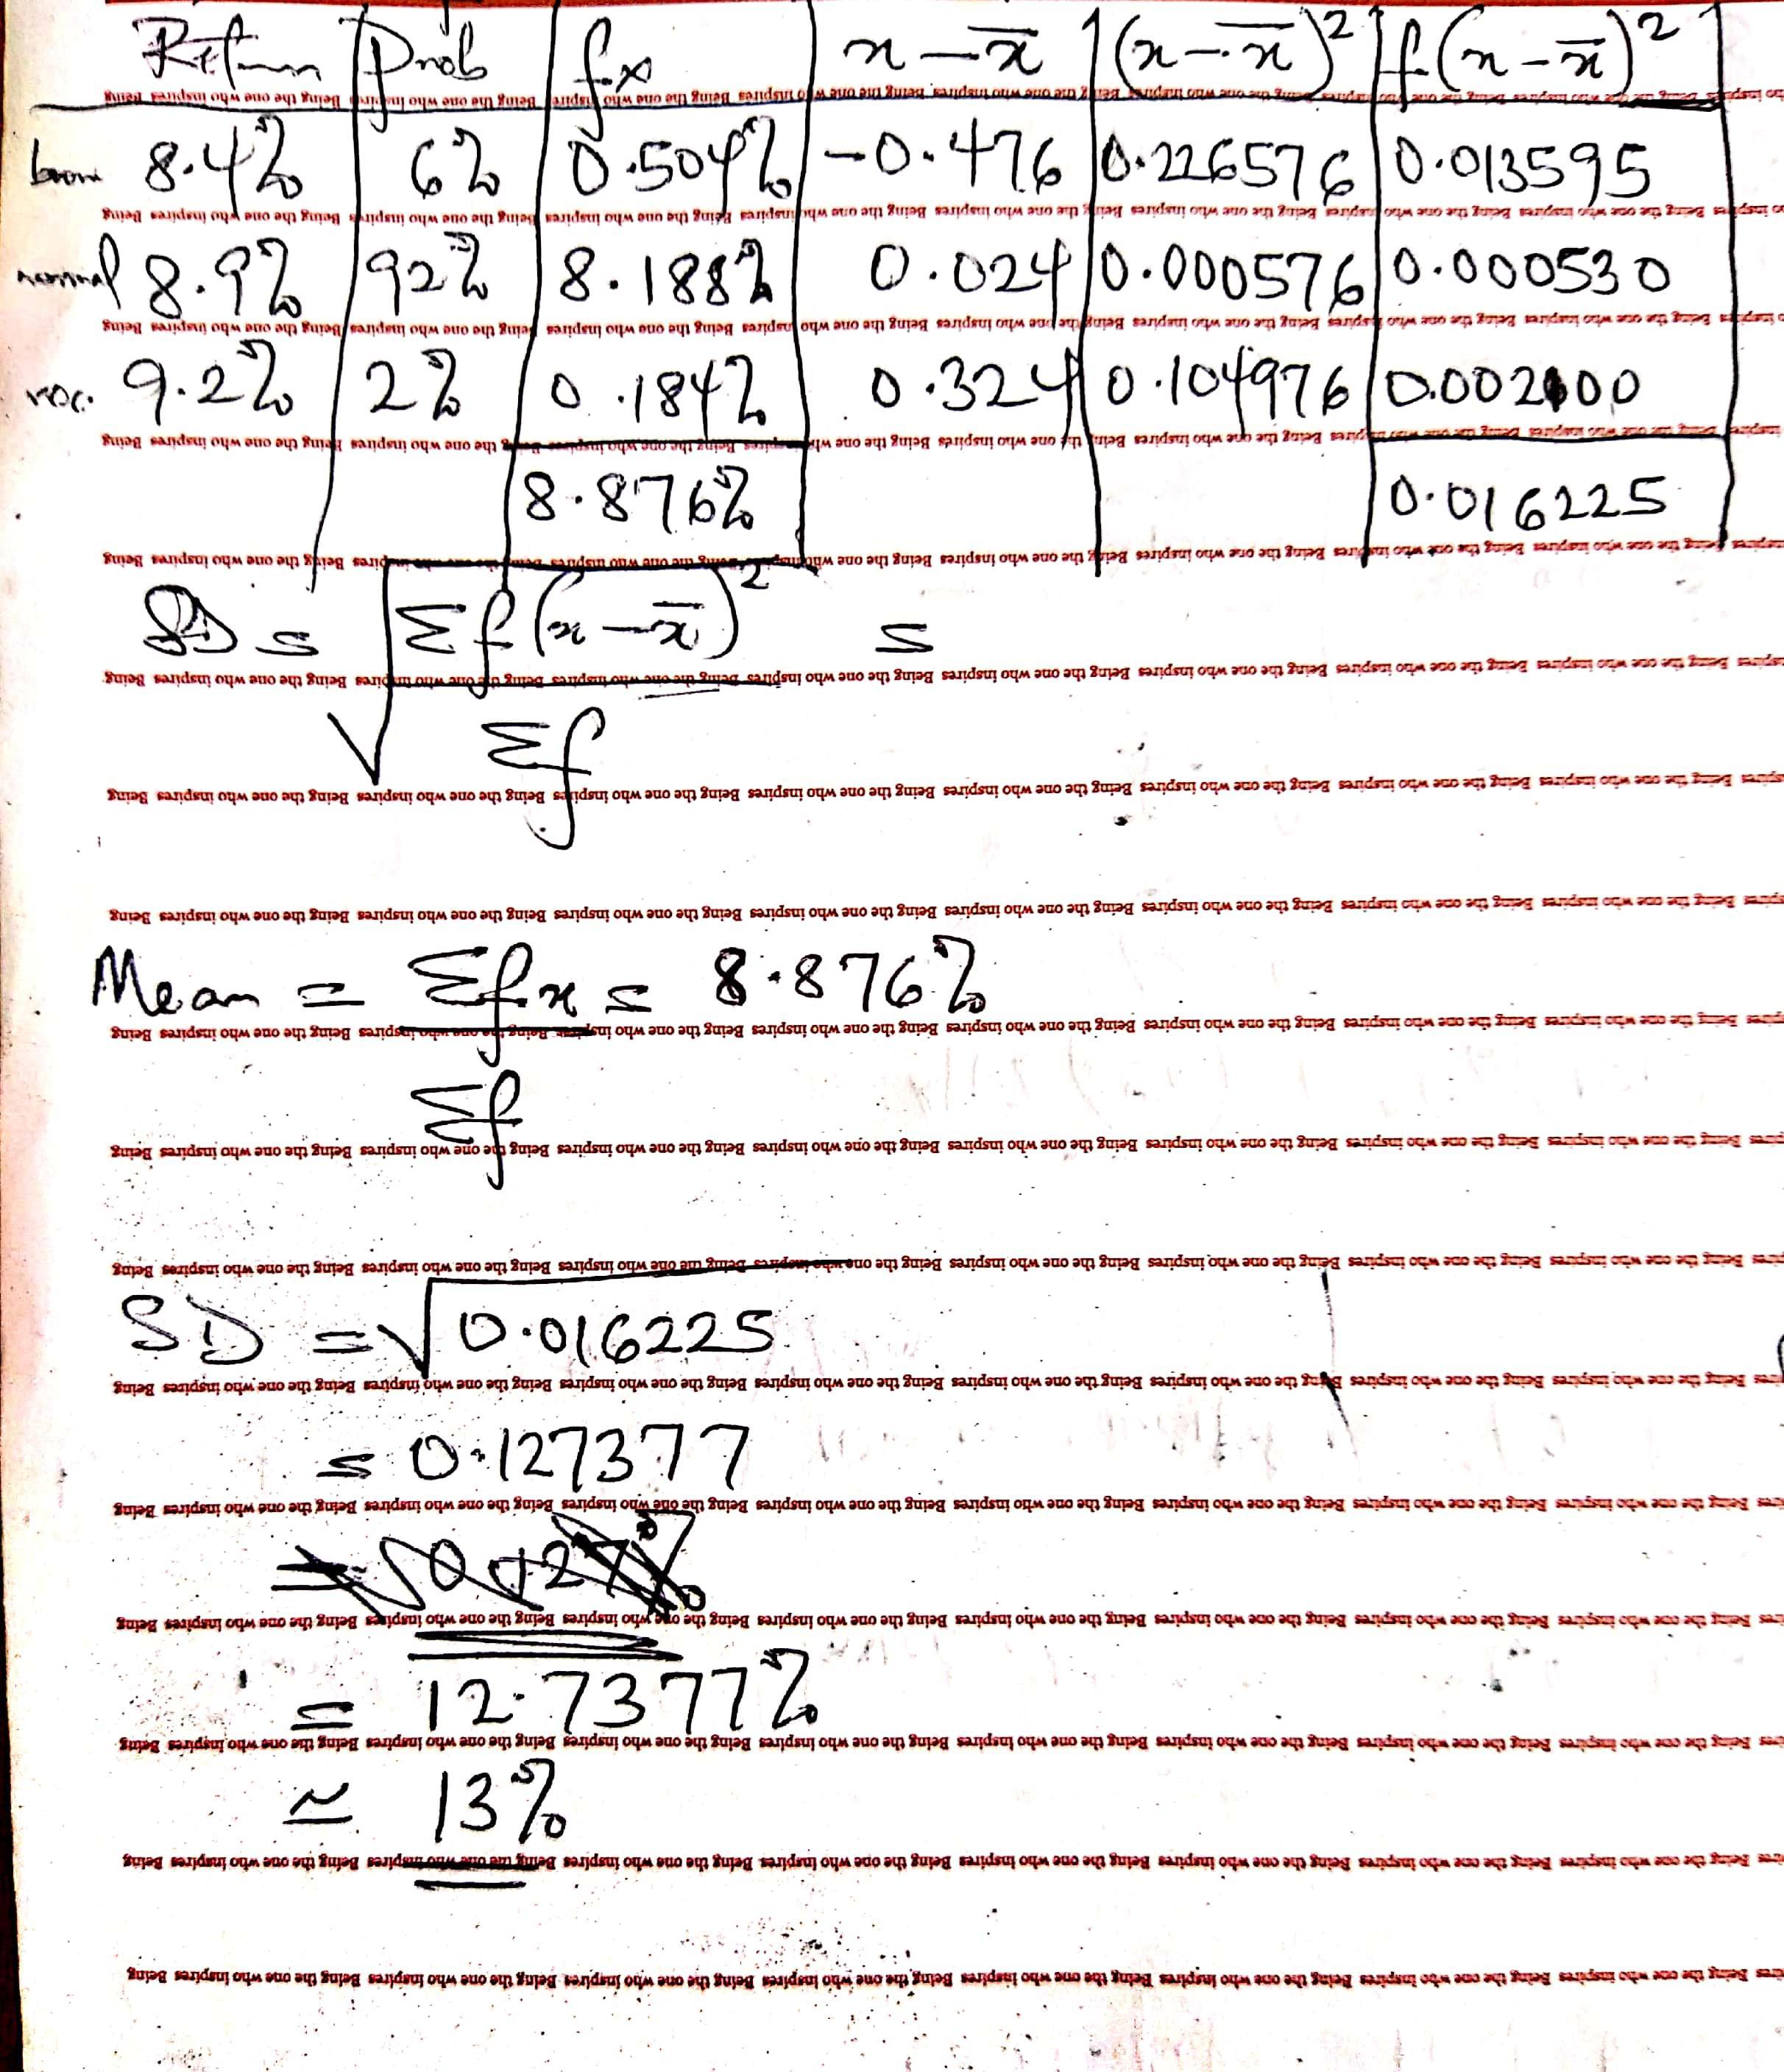 Return Prob fx x - x̄ (x - x̄)² f(x - x̄)²
boom 8.4% 6% 0.504% -0.476 0.226576 0.013595
normal 8.9% 92% 8.188% 0.024 0.000576 0.000530
rec. 9.2% 2% 0.184% 0.324 0.104976 0.002100
8.876% 0.016225
SD = √ Σf(x - x̄)² =
Σf
Mean = Σfx = 8.876%
Σf
SD = √0.016225
= 0.127377
= 12.7377%
≃ 13%
Being the one who inspires Being the one who inspires Being the one who inspires Being the one who inspires Being the one who inspires Being the one who inspires Being the one who inspires Being the one who inspires